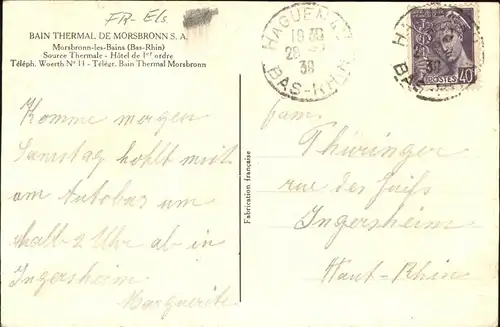 FR-Els.
BAIN THERMAL DE MORSBRONN S. A.
Morsbronn-les-Bains (Bas-Rhin)
Source Thermale - Hôtel de 1er ordre
Téléph. Woerth N° 11 - Télégr. Bain Thermal Morsbronn
HAGUENAU
19 30
28
38
BAS-RHIN
HAG
38
BAS
POSTES 40
Komme morgen
Samstag hohlt mich
am Autobus um
halb 2 Uhr ab in
Ingersheim
Marguerite
Fabrication française
fam.
Thüringer
rue des Juifs
Ingersheim
Haut-Rhin